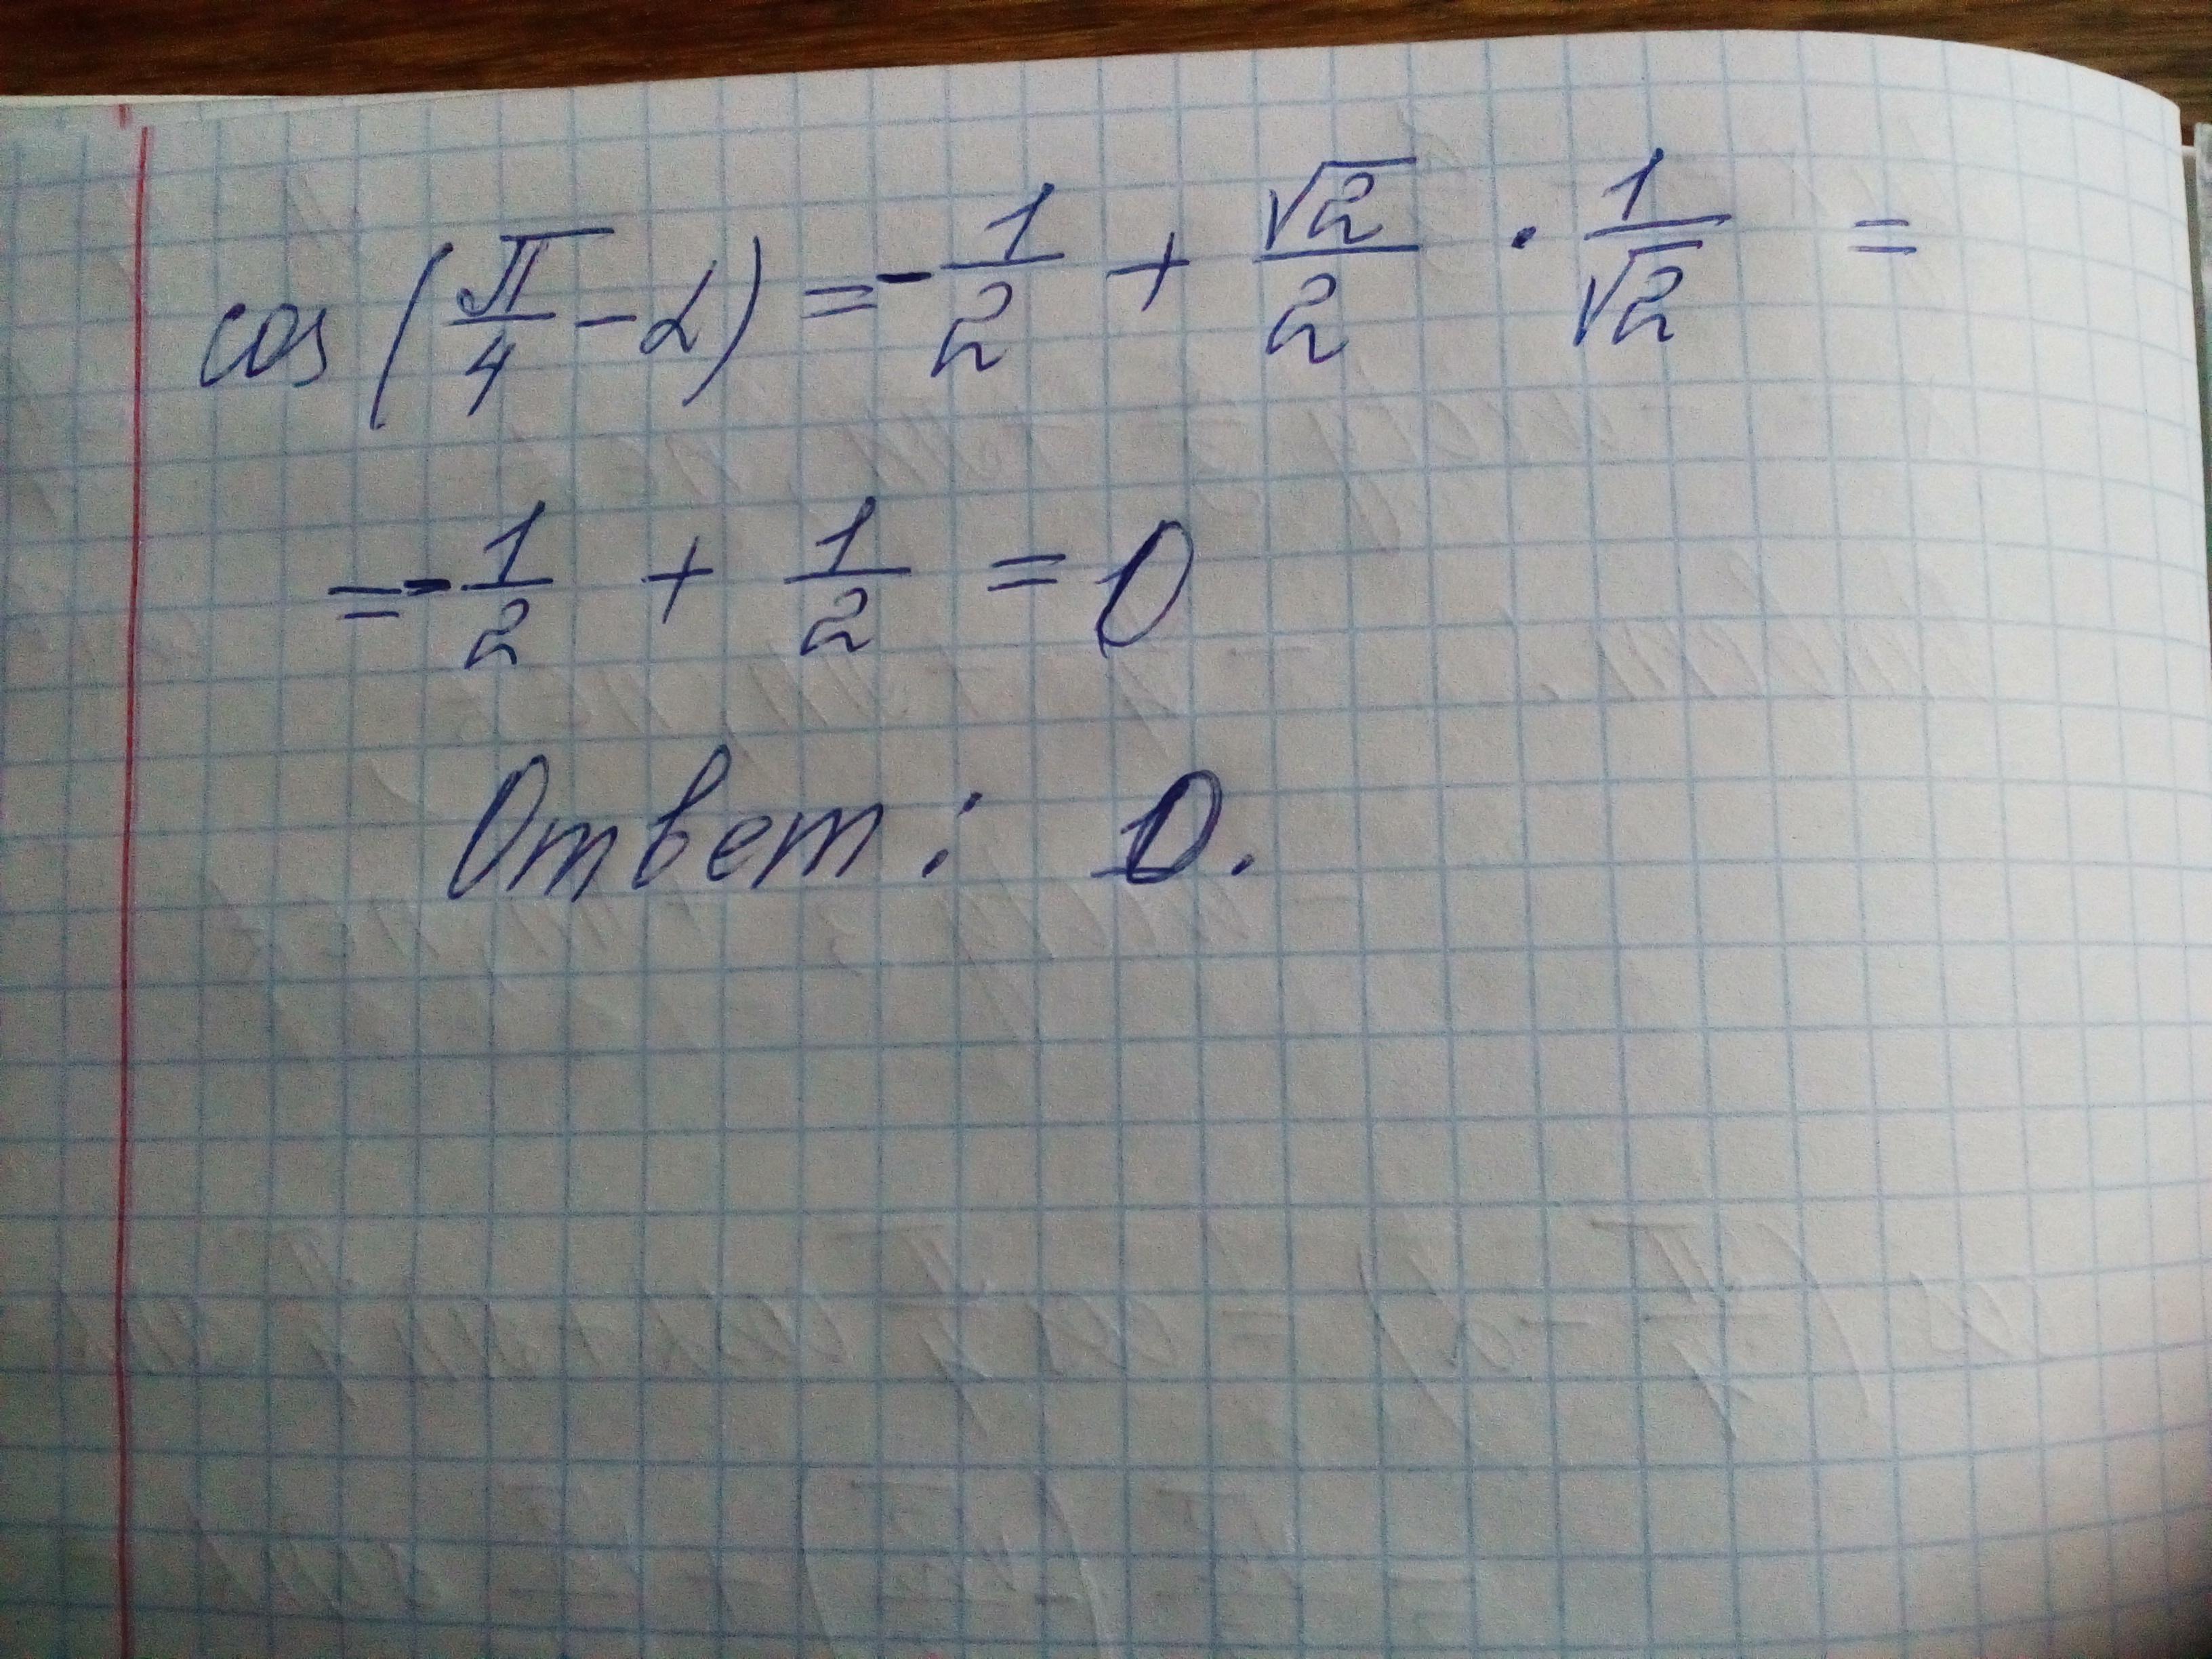 cos(π/4 - α) = -1/2 + √2/2 · 1/√2 =
= -1/2 + 1/2 = 0
Ответ: 0.